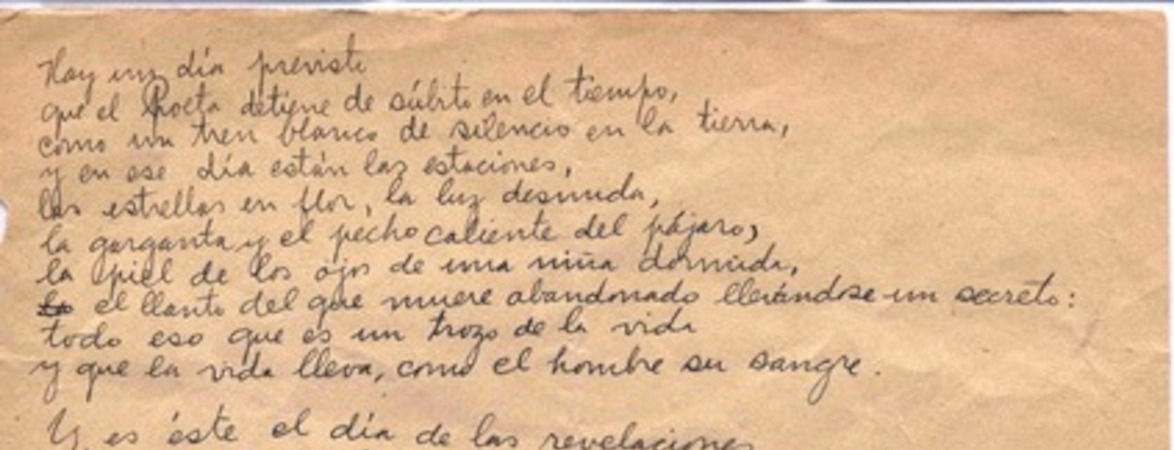 Hay un día previsto
que el Poeta detiene de súbito en el tiempo,
como un tren blanco de silencio en la tierra,
y en ese día están las estaciones,
las estrellas en flor, la luz desnuda,
la garganta y el pecho caliente del pájaro,
la piel de los ojos de una niña dormida,
el llanto del que muere abandonado llevándose un secreto:
todo eso que es un trozo de la vida
y que la vida lleva, como el hombre su sangre.
Y es éste el día de las revelaciones